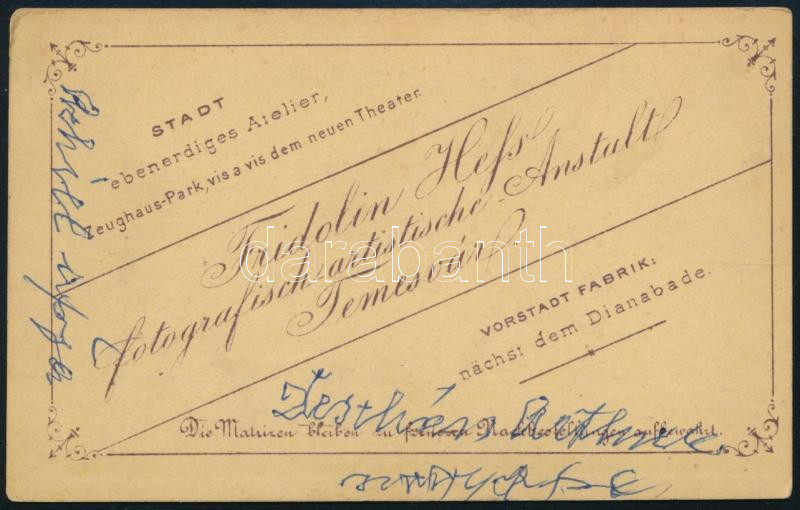 STADT
ebenerdiges Atelier,
Zeughaus-Park, vis a vis dem neuen Theater.
Fridolin Hess
fotografisch-artistische-Anstalt
Temesvár
VORSTADT FABRIK:
nächst dem Dianabade.
Die Matrizen bleiben zu ferneren Nachbestellungen aufbewahrt.
darabanth